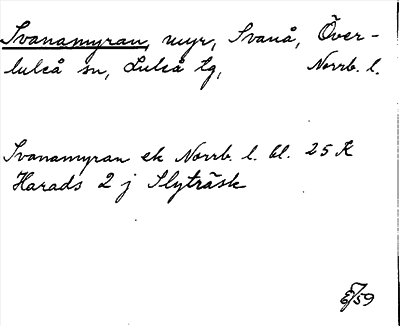 Svanamyran, myr, Svanå, Över-
luleå sn, Luleå tg, Norrb. l.
Svanamyran ek Norrb. l. bl. 25 K
Harads 2 j Slyträsk
E/59